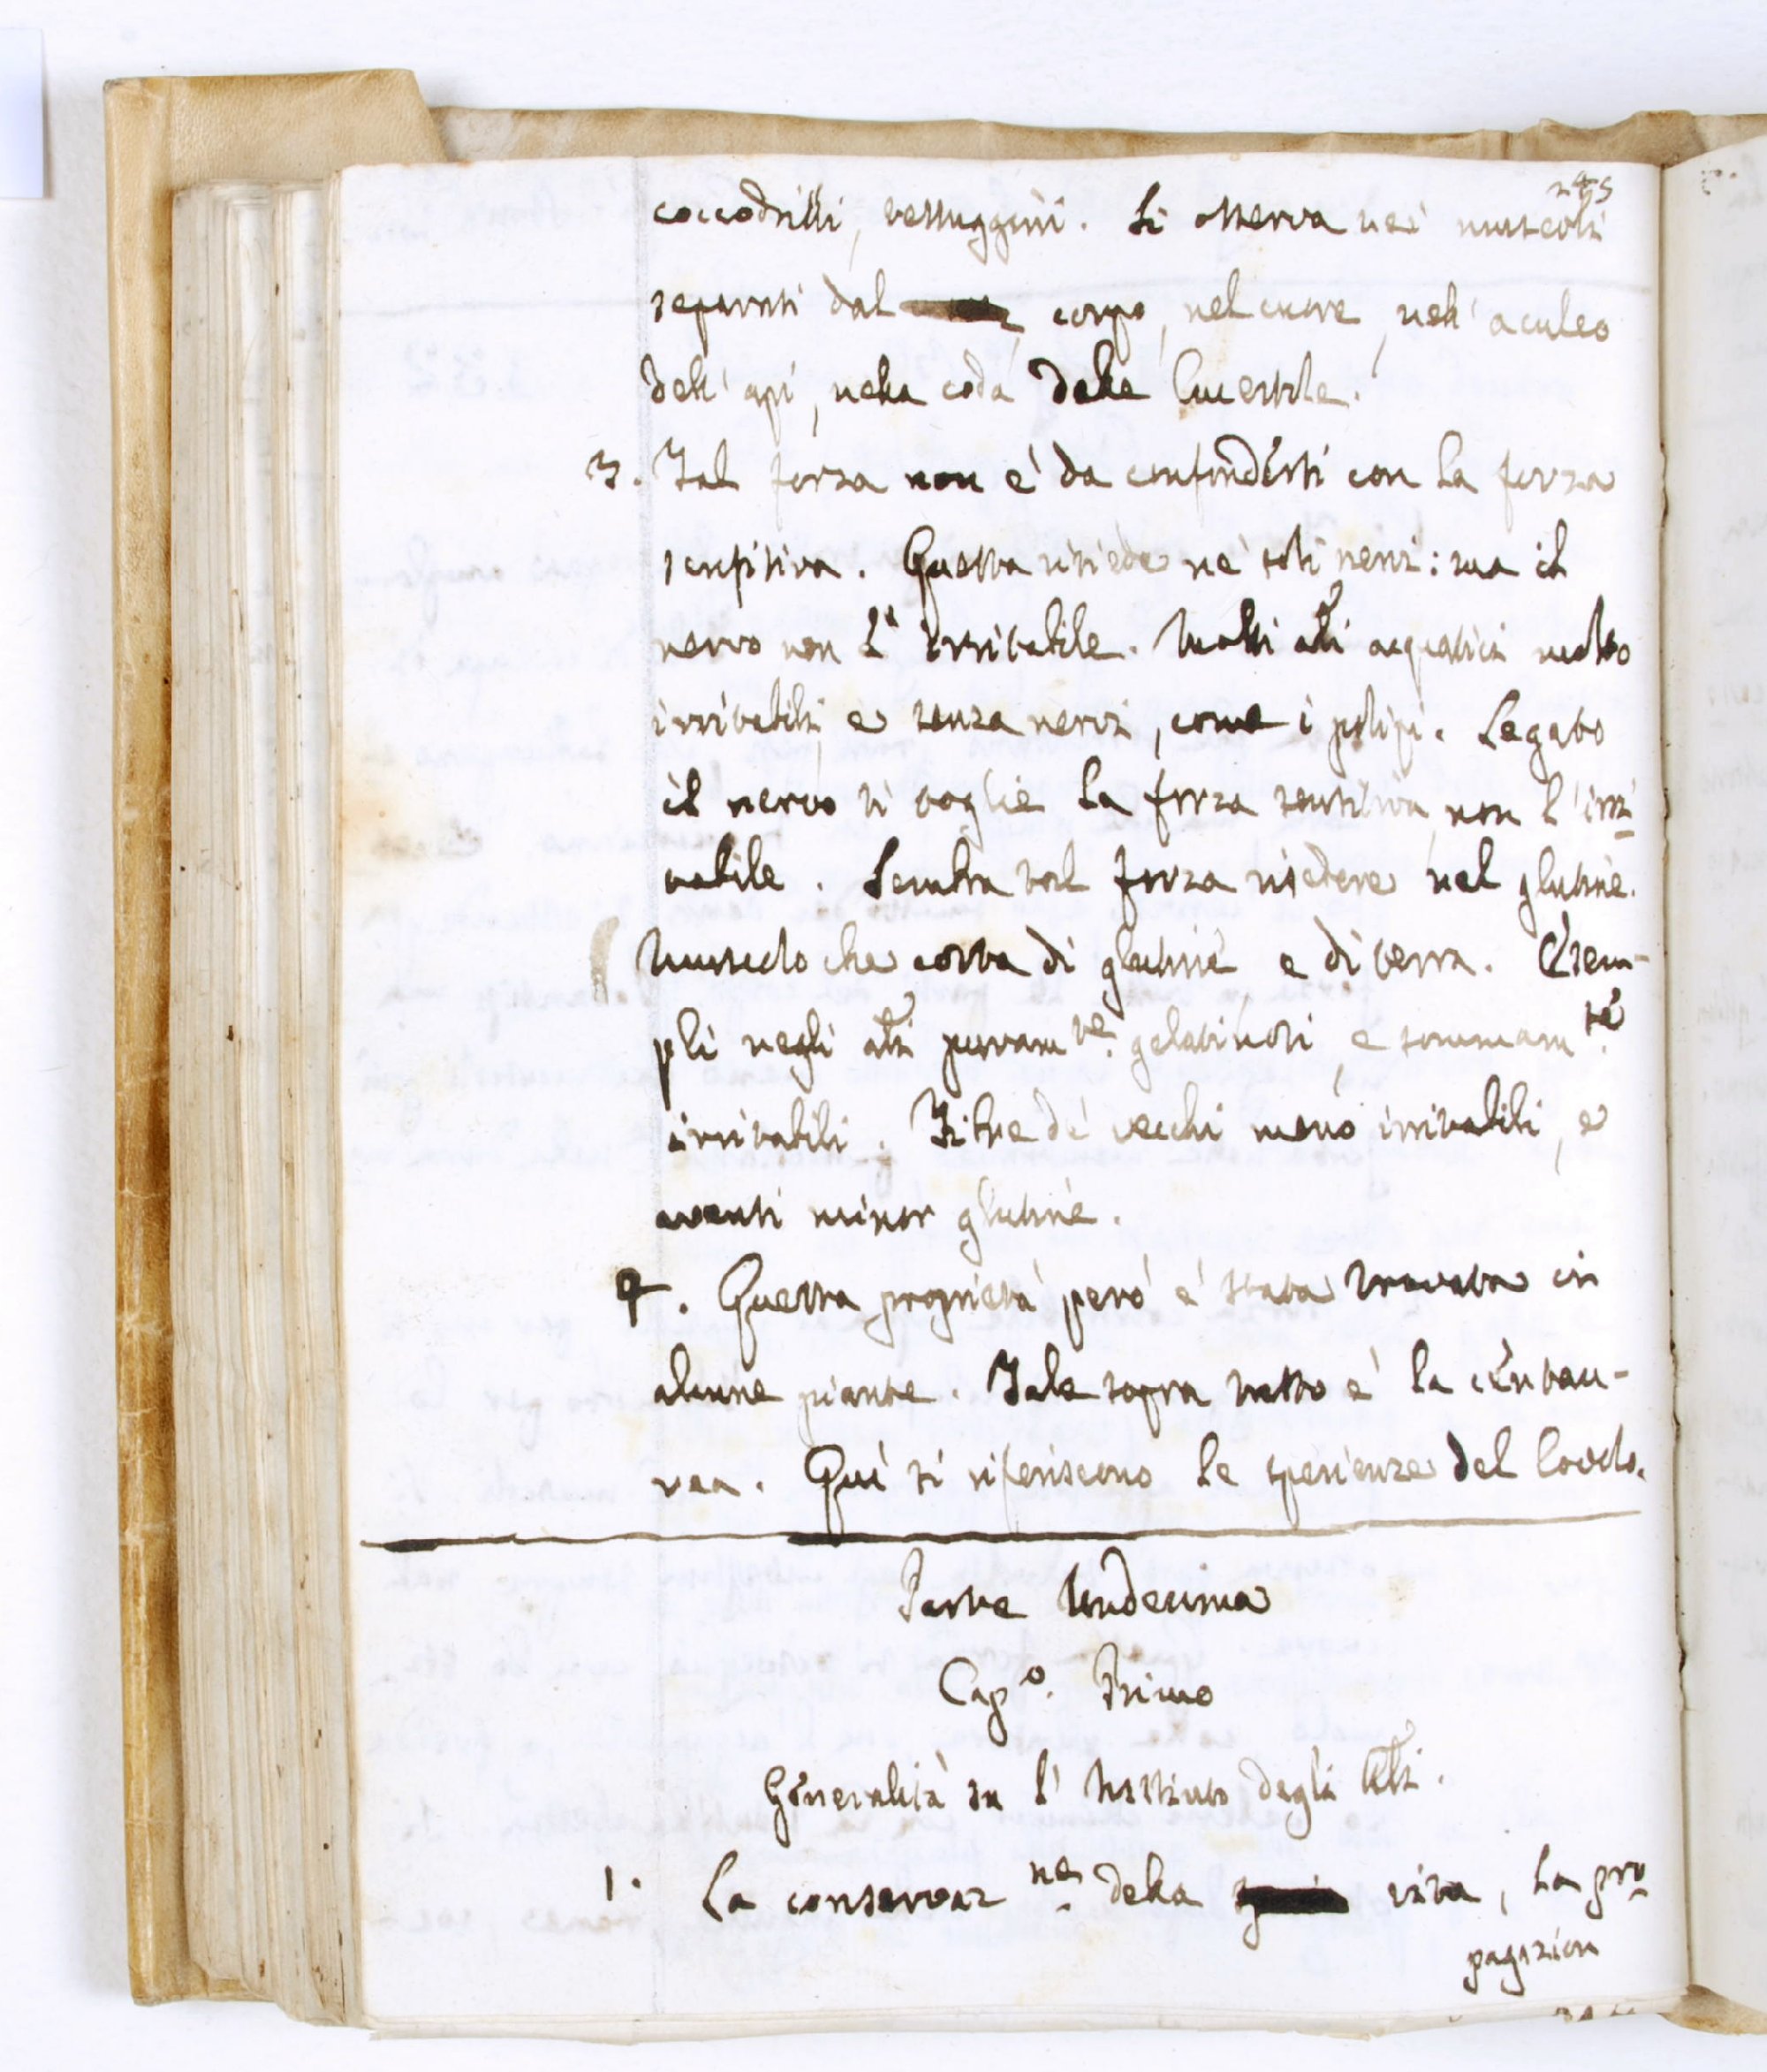 245
coccodrilli, testuggini. Si osserva nei muscoli
separati dal corpo, nel cuore, nell' aculeo
dell' api, nella coda delle lucertole.
3. Tal forza non è da confondersi con la forza
sensitiva. Questa risiede ne' soli nervi: ma il
nervo non è irritabile. Molti ali acquatici molto
irritabili e senza nervi, come i polipi. Legato
il nervo si toglie la forza sensitiva, non l' irri-
tabile. Sembra tal forza risedere nel glutine.
Muscolo che costa di glutine e di terra. Esem-
pli negli ali puram.te gelatinosi, e sommam.te
irritabili. Fibre de' vecchi meno irritabili, e
aventi minor glutine.
4. Questa proprietà però è stata trovata in
alcune piante. Tale sopra tutto è la centau-
rea. Qui si riferiscono le sperienze del Covolo.
Parte Undecima
Cap.o Primo
Generalità su l' Instinto degli Ali.
1. La conservaz.ne della vita, la pro-
pagazion